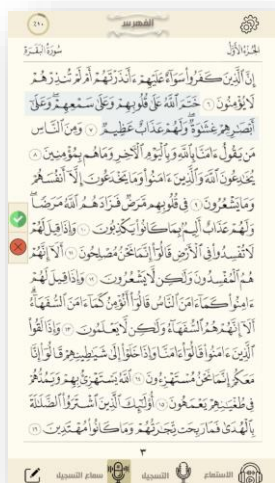 ٪١٠
الفهرس
الجزء الأول
سورة البقرة
إِنَّ ٱلَّذِينَ كَفَرُوا۟ سَوَآءٌ عَلَيْهِمْ ءَأَنذَرْتَهُمْ أَمْ لَمْ تُنذِرْهُمْ
لَا يُؤْمِنُونَ ٦ خَتَمَ ٱللَّهُ عَلَىٰ قُلُوبِهِمْ وَعَلَىٰ سَمْعِهِمْ ۖ وَعَلَىٰٓ
أَبْصَٰرِهِمْ غِشَٰوَةٌ ۖ وَلَهُمْ عَذَابٌ عَظِيمٌ ٧ وَمِنَ ٱلنَّاسِ
مَن يَقُولُ ءَامَنَّا بِٱللَّهِ وَبِٱلْيَوْمِ ٱلْءَاخِرِ وَمَا هُم بِمُؤْمِنِينَ ٨
يُخَٰدِعُونَ ٱللَّهَ وَٱلَّذِينَ ءَامَنُوا۟ وَمَا يَخْدَعُونَ إِلَّآ أَنفُسَهُمْ
وَمَا يَشْعُرُونَ ٩ فِى قُلُوبِهِم مَّرَضٌ فَزَادَهُمُ ٱللَّهُ مَرَضًا ۖ
وَلَهُمْ عَذَابٌ أَلِيمٌۢ بِمَا كَانُوا۟ يَكْذِبُونَ ١٠ وَإِذَا قِيلَ لَهُمْ
لَا تُفْسِدُوا۟ فِى ٱلْأَرْضِ قَالُوٓا۟ إِنَّمَا نَحْنُ مُصْلِحُونَ ١١ أَلَآ إِنَّهُمْ
هُمُ ٱلْمُفْسِدُونَ وَلَٰكِن لَّا يَشْعُرُونَ ١٢ وَإِذَا قِيلَ لَهُمْ
ءَامِنُوا۟ كَمَآ ءَامَنَ ٱلنَّاسُ قَالُوٓا۟ أَنُؤْمِنُ كَمَآ ءَامَنَ ٱلسُّفَهَآءُ ۗ
أَلَآ إِنَّهُمْ هُمُ ٱلسُّفَهَآءُ وَلَٰكِن لَّا يَعْلَمُونَ ١٣ وَإِذَا لَقُوا۟
ٱلَّذِينَ ءَامَنُوا۟ قَالُوٓا۟ ءَامَنَّا وَإِذَا خَلَوْا۟ إِلَىٰ شَيَٰطِينِهِمْ قَالُوٓا۟ إِنَّا
مَعَكُمْ إِنَّمَا نَحْنُ مُسْتَهْزِءُونَ ١٤ ٱللَّهُ يَسْتَهْزِئُ بِهِمْ وَيَمُدُّهُمْ
فِى طُغْيَٰنِهِمْ يَعْمَهُونَ ١٥ أُو۟لَٰٓئِكَ ٱلَّذِينَ ٱشْتَرَوُا۟ ٱلضَّلَٰلَةَ
بِٱلْهُدَىٰ فَمَا رَبِحَت تِّجَٰرَتُهُمْ وَمَا كَانُوا۟ مُهْتَدِينَ ١٦
٣
الاستماع
التسجيل
سماع التسجيل